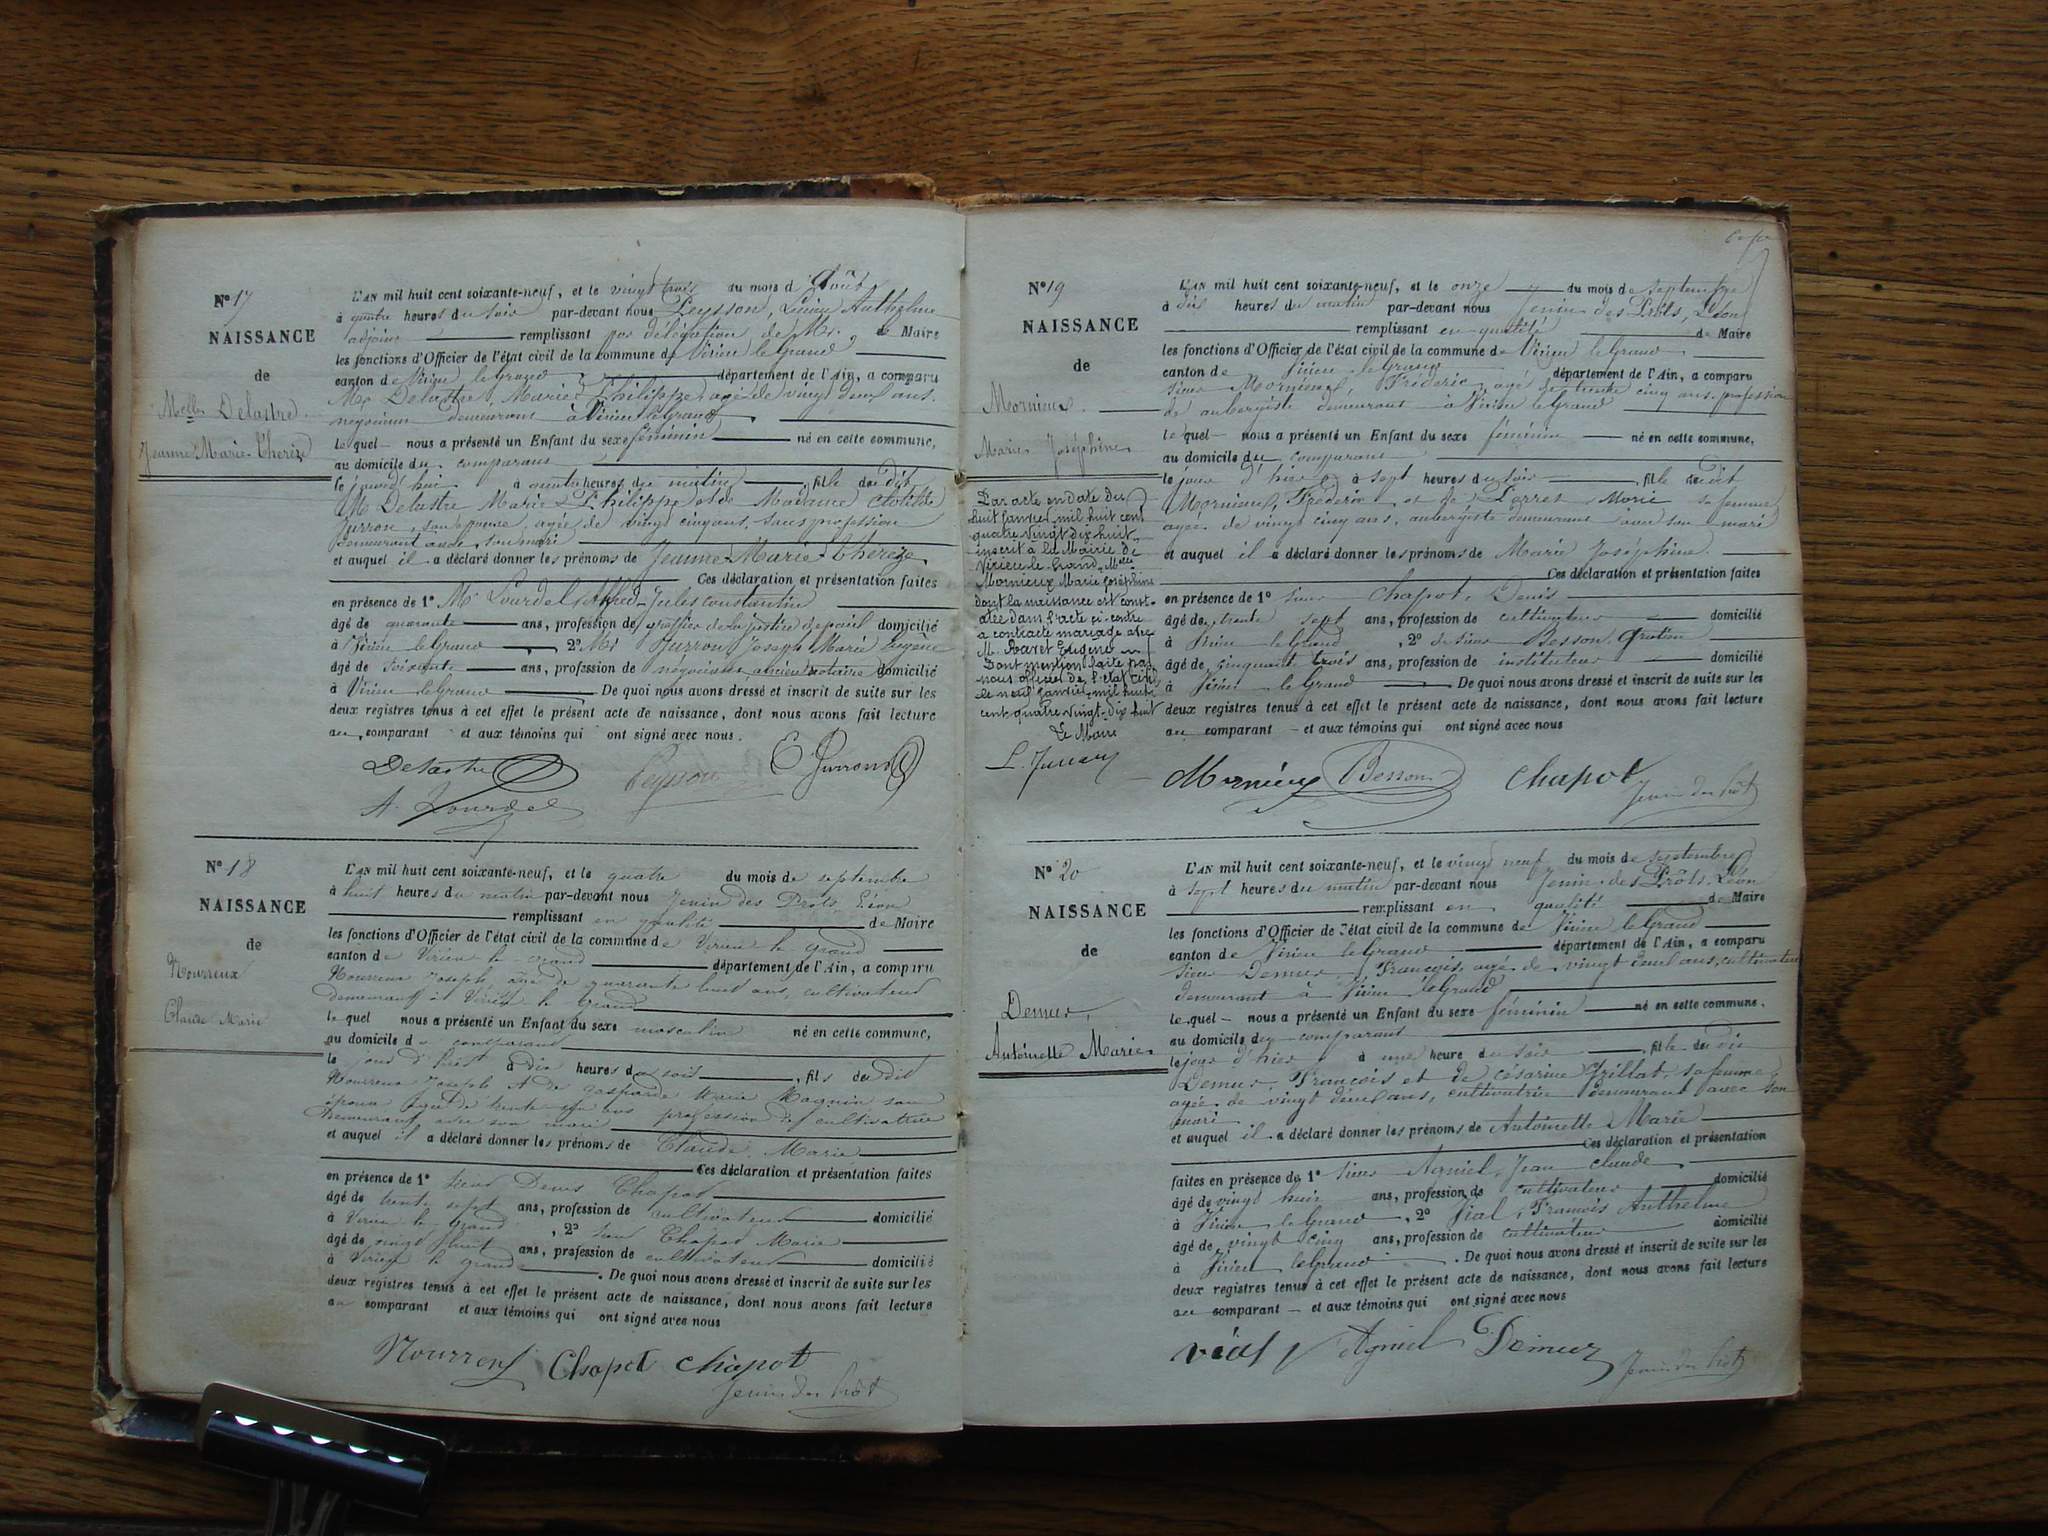 N° 17
NAISSANCE
de
Melle Delastre
Jeanne Marie Thereze
L'AN mil huit cent soixante-neuf, et le vingt trois du mois d'Août
à quatre heures du soir par-devant nous Peysson, Anthelme
adjoint remplissant par délégation de Mr. de Maire
les fonctions d'Officier de l'état civil de la commune de Virieu le Grand
canton de Virieu le Grand département de l'Ain, a comparu
Mr Delastre, Marie Philippe, agé de vingt deux ans.
négociant demeurant à Virieu le Grand
lequel nous a présenté un Enfant du sexe féminin né en cette commune,
au domicile du comparant
le jourd'hui à quatre heures du matin fille du dit
M Delastre Marie Philippe et de Madame Clotilde
Jurron, son épouse, agée de vingt cinq ans, sans profession
demeurant avec son mari
et auquel il a déclaré donner les prénoms de Jeanne-Marie-Thereze
Ces déclaration et présentation faites
en présence de 1° Mr Lourdel, Alfred-Jules Constantin
âgé de quarante ans, profession de greffier de la justice de paix domicilié
à Virieu le Grand 2° Mr Jurron, Joseph Marie Eugène
âgé de soixante ans, profession de négociant, ancien notaire domicilié
à Virieu le Grand De quoi nous avons dressé et inscrit de suite sur les
deux registres tenus à cet effet le présent acte de naissance, dont nous avons fait lecture
au comparant et aux témoins qui ont signé avec nous.
Delastre Peysson E Jurron
A. Lourdel
N° 18
NAISSANCE
de
Nourreux
Claude Marie
L'AN mil huit cent soixante-neuf, et le quatre du mois de septembre
à huit heures du matin par-devant nous Jenin des Prots Léon
remplissant en qualité de Maire
les fonctions d'Officier de l'état civil de la commune de Virieu le grand
canton de Virieu le grand département de l'Ain, a comparu
Nourreux Joseph âgé de quarante huit ans, cultivateur
demeurant à Virieu le Grand
lequel nous a présenté un Enfant du sexe masculin né en cette commune,
au domicile du comparant
le jour d'hier à dix heures du soir, fils du dit
Nourreux Joseph et de Gasparde Marie Magnin son
épouse agée de trente ans profession de cultivatrice
demeurant avec son mari
et auquel il a déclaré donner les prénoms de Claude Marie
Ces déclaration et présentation faites
en présence de 1° sieur Denis Chapot
âgé de trente sept ans, profession de cultivateur domicilié
à Virieu le Grand, 2° sieur Chapot Marie
âgé de vingt huit ans, profession de cultivateur domicilié
à Virieu le grand. De quoi nous avons dressé et inscrit de suite sur les
deux registres tenus à cet effet le présent acte de naissance, dont nous avons fait lecture
au comparant et aux témoins qui ont signé avec nous
Nourreux Chapot Chapot
Jenin des Prôts
N° 19
NAISSANCE
de
Mornieux
Marie Joséphine
Par acte en date du
huit Janvier mil huit cent
quatre vingt dix huit
inscrit à la Mairie de
Virieu-le-Grand, Melle
Mornieux Marie Joséphine
dont la naissance est const-
atée dans l'acte ci-contre
a contracté mariage avec
M. Eugène
Dont mention faite par
nous officier de l'état civil
le neuf Janvier mil huit
cent quatre vingt-dix huit
Le Maire
L'AN mil huit cent soixante-neuf, et le onze du mois de septembre
à dix heures du matin par-devant nous Jenin des Prôts, Léon
remplissant en qualité de Maire
les fonctions d'Officier de l'état civil de la commune de Virieu le Grand
canton de Virieu le Grand département de l'Ain, a comparu
sieur Mornieux, Fréderic, agé de trente cinq ans, profession
de aubergiste demeurant à Virieu le Grand
lequel nous a présenté un Enfant du sexe féminin né en cette commune,
au domicile du comparant
le jour d'hier à sept heures du soir, fille du dit
Mornieux, Fréderic et de Perret Marie sa femme
agée de vingt cinq ans, aubergiste demeurant avec son mari
et auquel il a déclaré donner les prénoms de Marie Joséphine
Ces déclaration et présentation faites
en présence de 1° sieur Chapot, Denis
âgé de trente sept ans, profession de cultivateur domicilié
à Virieu le Grand, 2° de sieur Besson
âgé de cinquante trois ans, profession de instituteur domicilié
à Virieu le Grand De quoi nous avons dressé et inscrit de suite sur les
deux registres tenus à cet effet le présent acte de naissance, dont nous avons fait lecture
au comparant et aux témoins qui ont signé avec nous
Mornieux Besson Chapot
Jenin des Prôts
N° 20
NAISSANCE
de
Demur,
Antoinette Marie
L'AN mil huit cent soixante-neuf, et le vingt neuf du mois de septembre
à sept heures du matin par-devant nous Jenin des Prôts, Léon
remplissant en qualité de Maire
les fonctions d'Officier de l'état civil de la commune de Virieu le Grand
canton de Virieu le Grand département de l'Ain, a comparu
sieur Demur, François, agé de vingt deux ans, cultivateur
demeurant à Virieu le Grand
lequel nous a présenté un Enfant du sexe féminin né en cette commune.
au domicile du comparant
le jour d'hier à une heure du soir, fille du dit
Demur, François et de Césarine Trillat, sa femme
agée de vingt deux ans, cultivatrice demeurant avec son
mari
et auquel il a déclaré donner les prénoms de Antoinette Marie
Ces déclaration et présentation
faites en présence de 1° sieur Agniel, Jean Claude domicilié
âgé de vingt huit ans, profession de cultivateur
à Virieu le Grand, 2° Vial, François Anthelme
âgé de vingt cinq ans, profession de cultivateur domicilié
à Virieu le Grand. De quoi nous avons dressé et inscrit de suite sur les
deux registres tenus à cet effet le présent acte de naissance, dont nous avons fait lecture
au comparant et aux témoins qui ont signé avec nous
vial Agniel Demur Jenin des Prôts